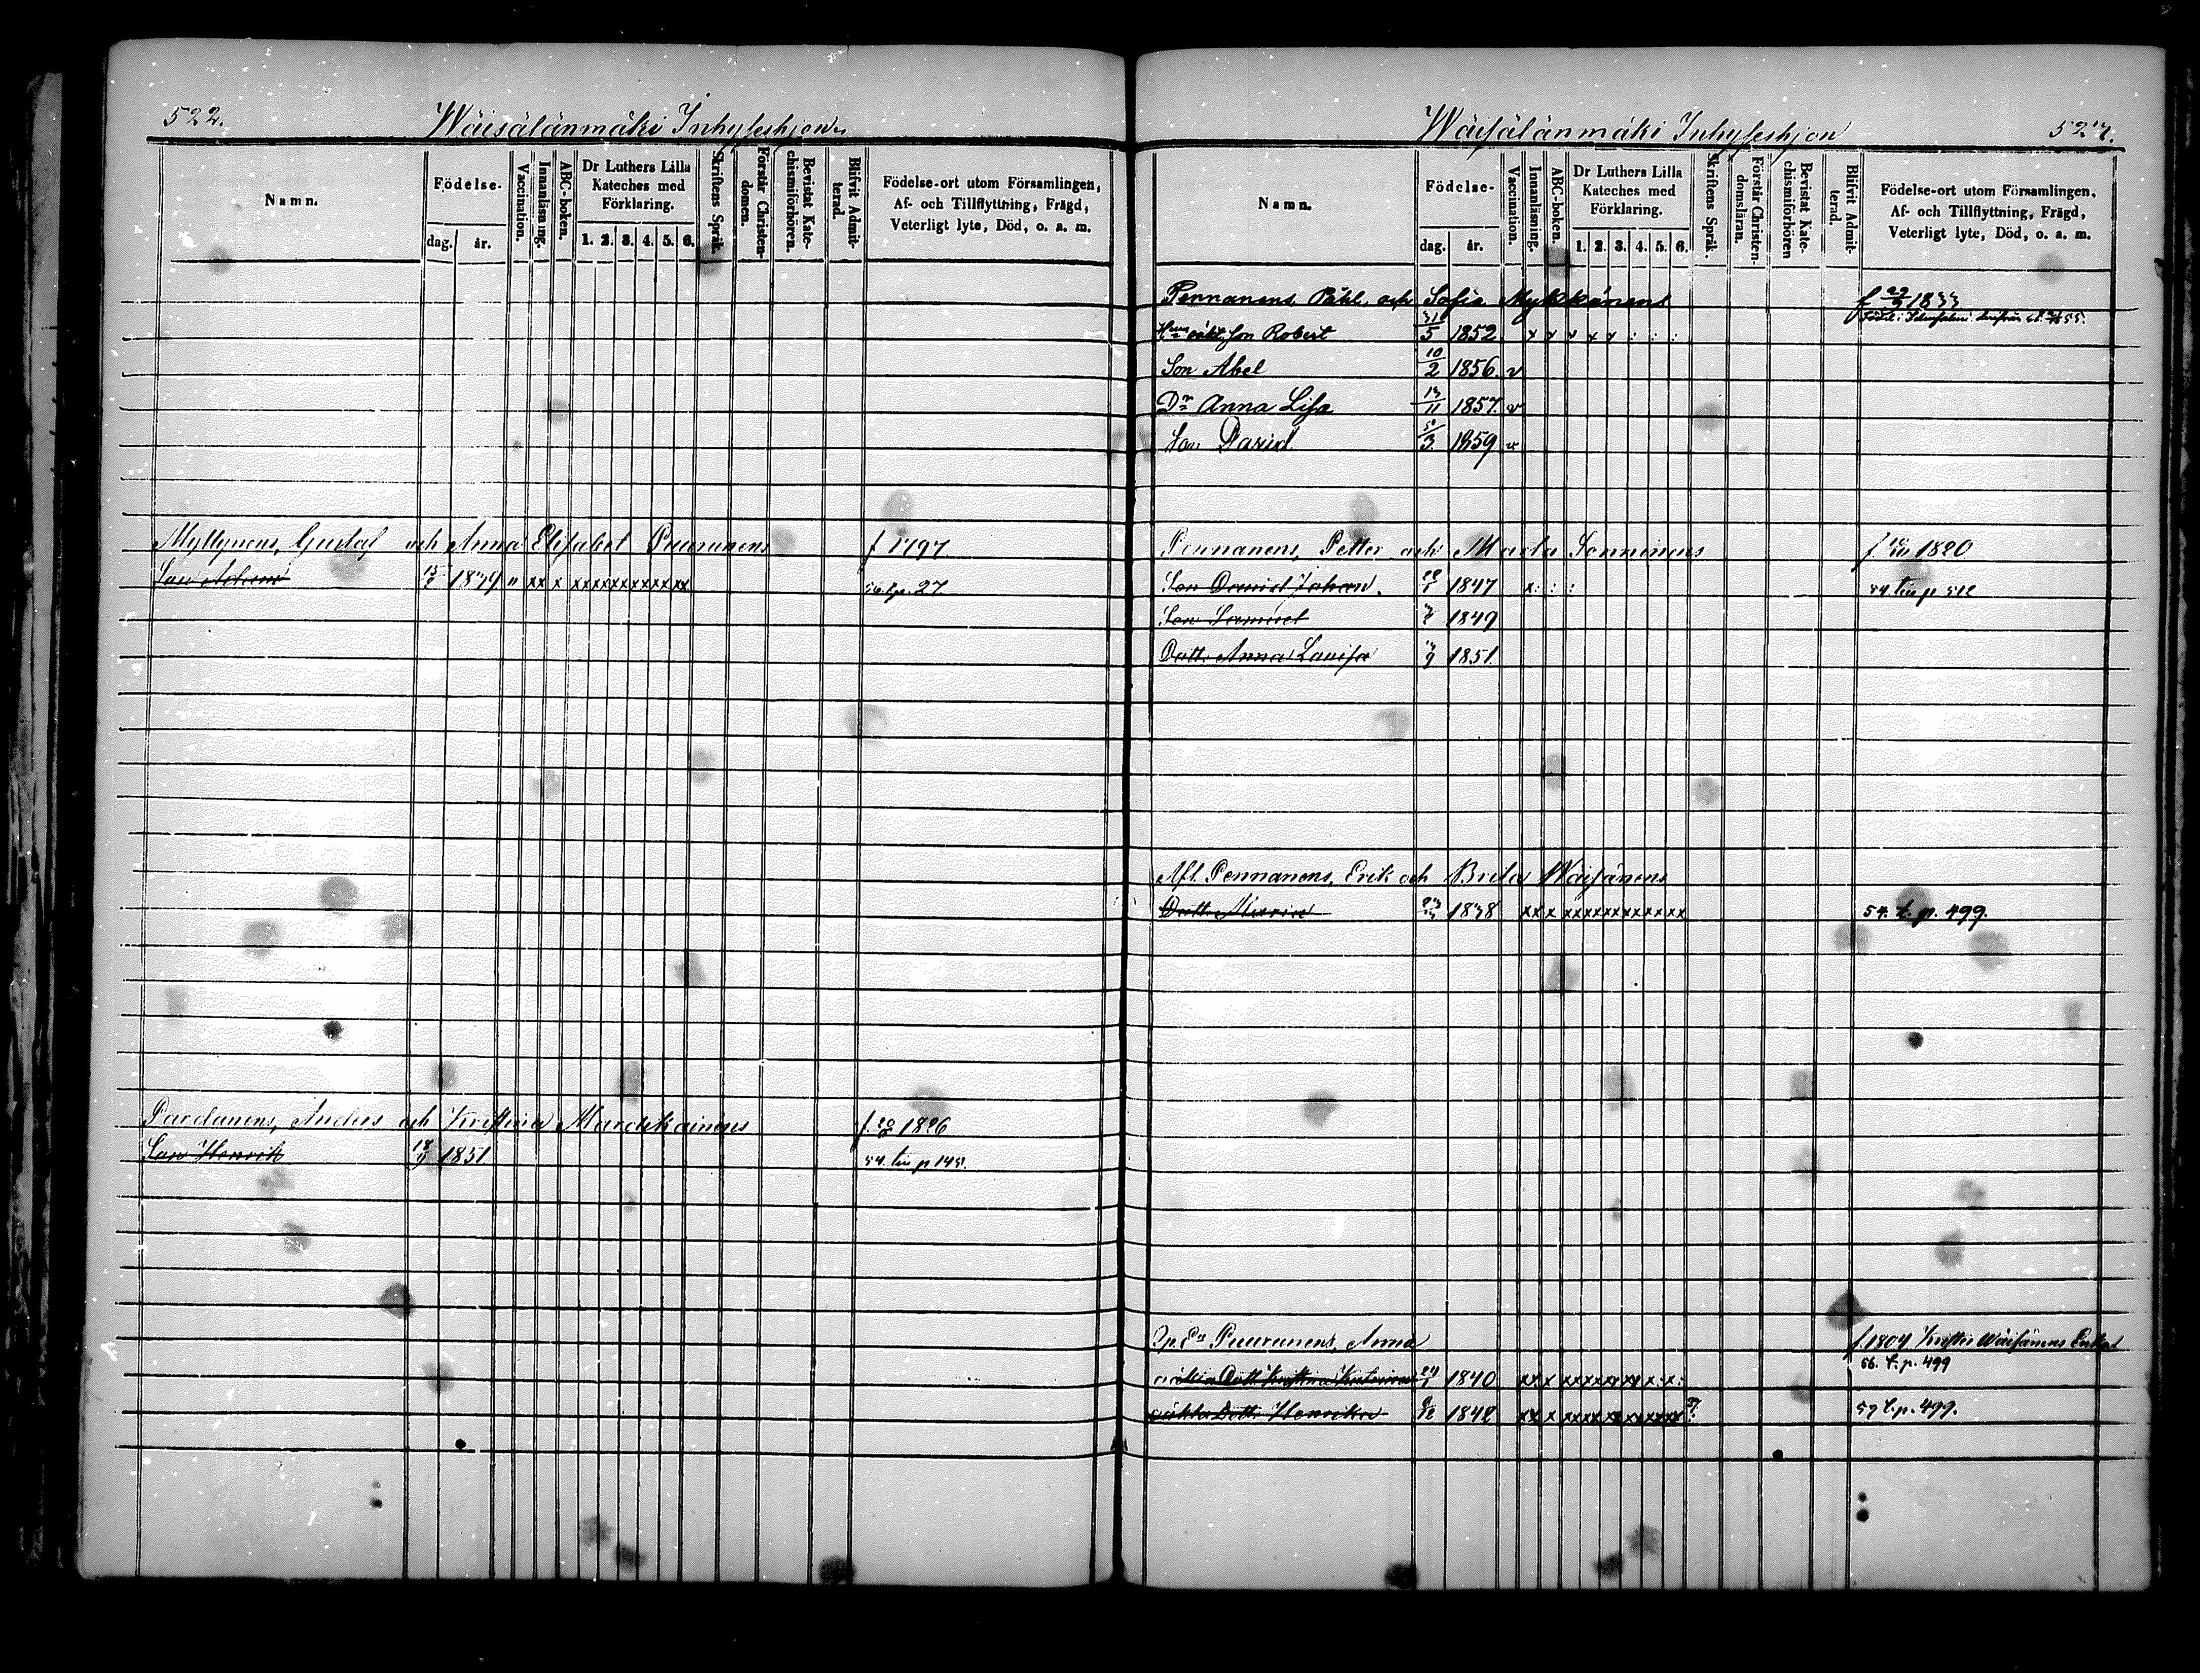 522.
Wäisälänmäki Inhyseshjon
Namn.
Födelse-
dag. år.
Vaccination.
Innanläsning.
ABC-boken.
Dr Luthers Lilla
Kateches med
Förklaring.
1. 2. 3. 4. 5. 6.
Skriftens Språk.
Förstår Christen-
domen.
Bevistat Kate-
chismiförhören.
Blifvit Admit-
terad.
Födelse-ort utom Församlingen,
Af- och Tillflyttning, Frägd,
Veterligt lyte, Död, o. a. m.
Myllynens, Gustaf och Anna Elisabet Puurunens f 1797
Son Adam 1839 v xx x xxxxxxxxxxx 56. t.p. 27
Pardanens, Anders och Kristina Marckainens f. 1826
Son Henrik 1851 54. tin p 145.
Wäisälänmäki Inhyseshjon
523.
Namn.
Födelse-
dag. år.
Vaccination.
Innanläsning.
ABC-boken.
Dr Luthers Lilla
Kateches med
Förklaring.
1. 2. 3. 4. 5. 6.
Skriftens Språk.
Förstår Christen-
domsläran.
Bevistat Kate-
chismiförhören
Blifvit Admit-
terad.
Födelse-ort utom Församlingen,
Af- och Tillflyttning, Frägd,
Veterligt lyte, Död, o. a. m.
Pennanens, Påhl och Sofia Mykkänens f 1833
Son Robert 31/5 1852
Son Abel 10/2 1856 v
Dr Anna Lisa 13/11 1857. v
Son David 1859 v
Pennanens, Petter och Maria Sonninens f. 1820
Son Daniel Johan. 1847 54. tin p 512
Son Samuel 1849
Dott. Anna Lovisa 1851.
Afl. Pennanens, Erik och Brita Wäisänens
Dott. Maria 1838 xx x xxxxxxxxxxx 54. t. p. 499.
Puurunens, Anna f. 1804 Wäisänens Enka
oäkta Dott Kristina Katarina 1840 56. t. p. 499
oäkta Dott. Henrika 1842 57 t.p. 499.